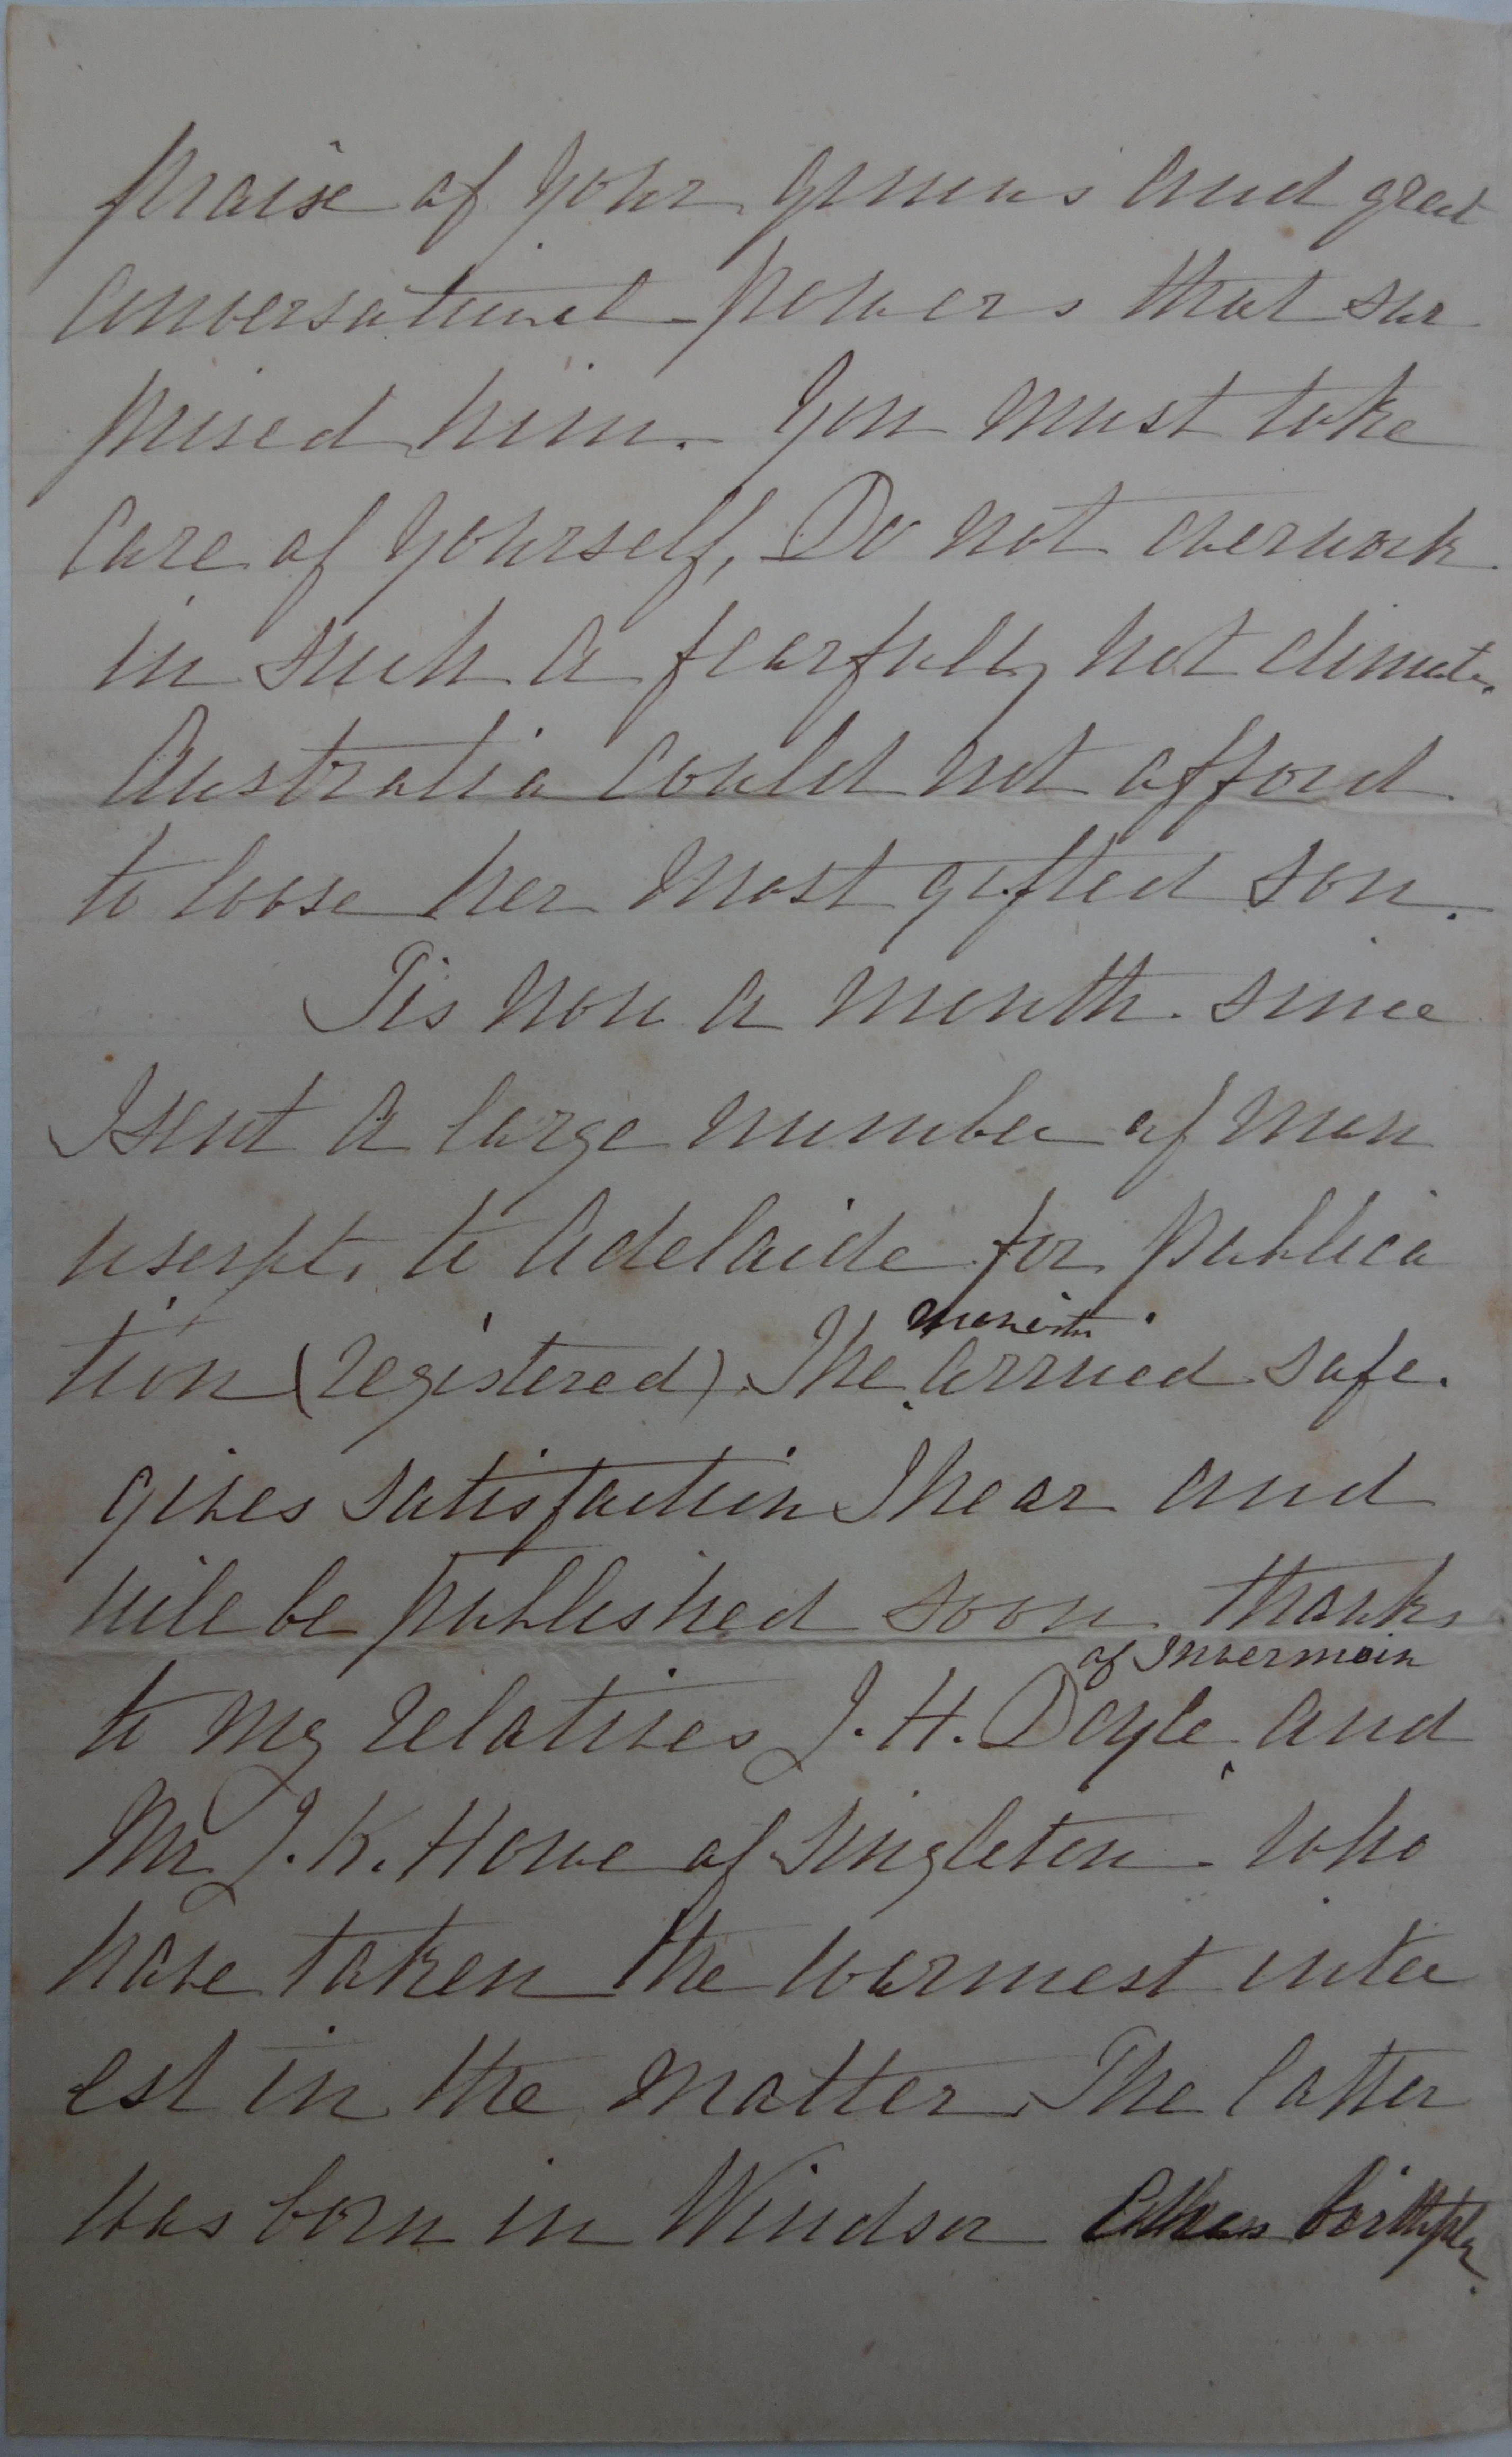 praise of your genius and great
conversational powers that sur
prised him. You must take
care of yourself, Do not overwork
in such a fearfully hot climate.
Australia could not afford
to loose her most gifted son.
Tis now a month since
I sent a large number of man
uscript, to Adelaide for publica
tion (registered). The arrived safe.
gives satisfaction I hear and
will be published soon thanks
of Invermein
to my relatives J. H. Doyle and
Mr J. K. Howe of Singleton who
have taken the warmest inter
est in the matter. The latter
was born in Windsor birthplace.